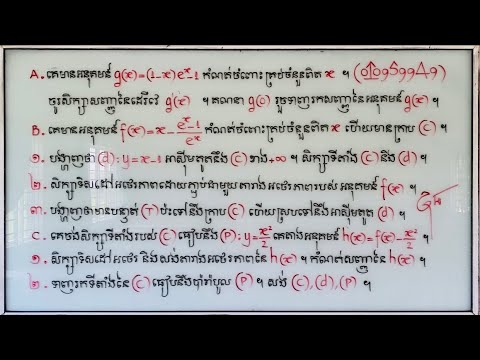 A. គេមានអនុគមន៍ g(x)=(1-x)eˣ-1 កំណត់ចំពោះគ្រប់ចំនួនពិត x ។
ចូរសិក្សាសញ្ញានៃដេរីវេ g'(x) ។ គណនា g(0) រួចទាញរកសញ្ញានៃអនុគមន៍ g(x) ។
B. គេមានអនុគមន៍ f(x)=x-(eˣ-1)/eˣ កំណត់ចំពោះគ្រប់ចំនួនពិត x ហើយមានក្រាប (C) ។
១. បង្ហាញថា (d):y=x-1 អាស៊ីមតូតនឹង (C) ខាង +∞ ។ សិក្សាទីតាំង (C) នឹង (d) ។
២. សិក្សាទិសដៅអថេរភាពដោយភ្ជាប់ជាមួយតារាងអថេរភាពរបស់ អនុគមន៍ f(x) ។
៣. បង្ហាញថាមានបន្ទាត់ (T) ប៉ះទៅនឹងក្រាប (C) ហើយស្របទៅនឹងអាស៊ីមតូត (d) ។
C. គេចង់សិក្សាទីតាំងរបស់ (C) ធៀបនឹង (P):y=x²/2 គេតាងអនុគមន៍ h(x)=f(x)-x²/2 ។
១. សិក្សាទិសដៅអថេរ និងសង់តារាងអថេរភាពនៃ h(x) ។ កំណត់សញ្ញានៃ h(x) ។
២. ទាញរកទីតាំងនៃ (C) ធៀបនឹងប៉ារ៉ាបូល (P) ។ សង់ (C),(d),(P) ។